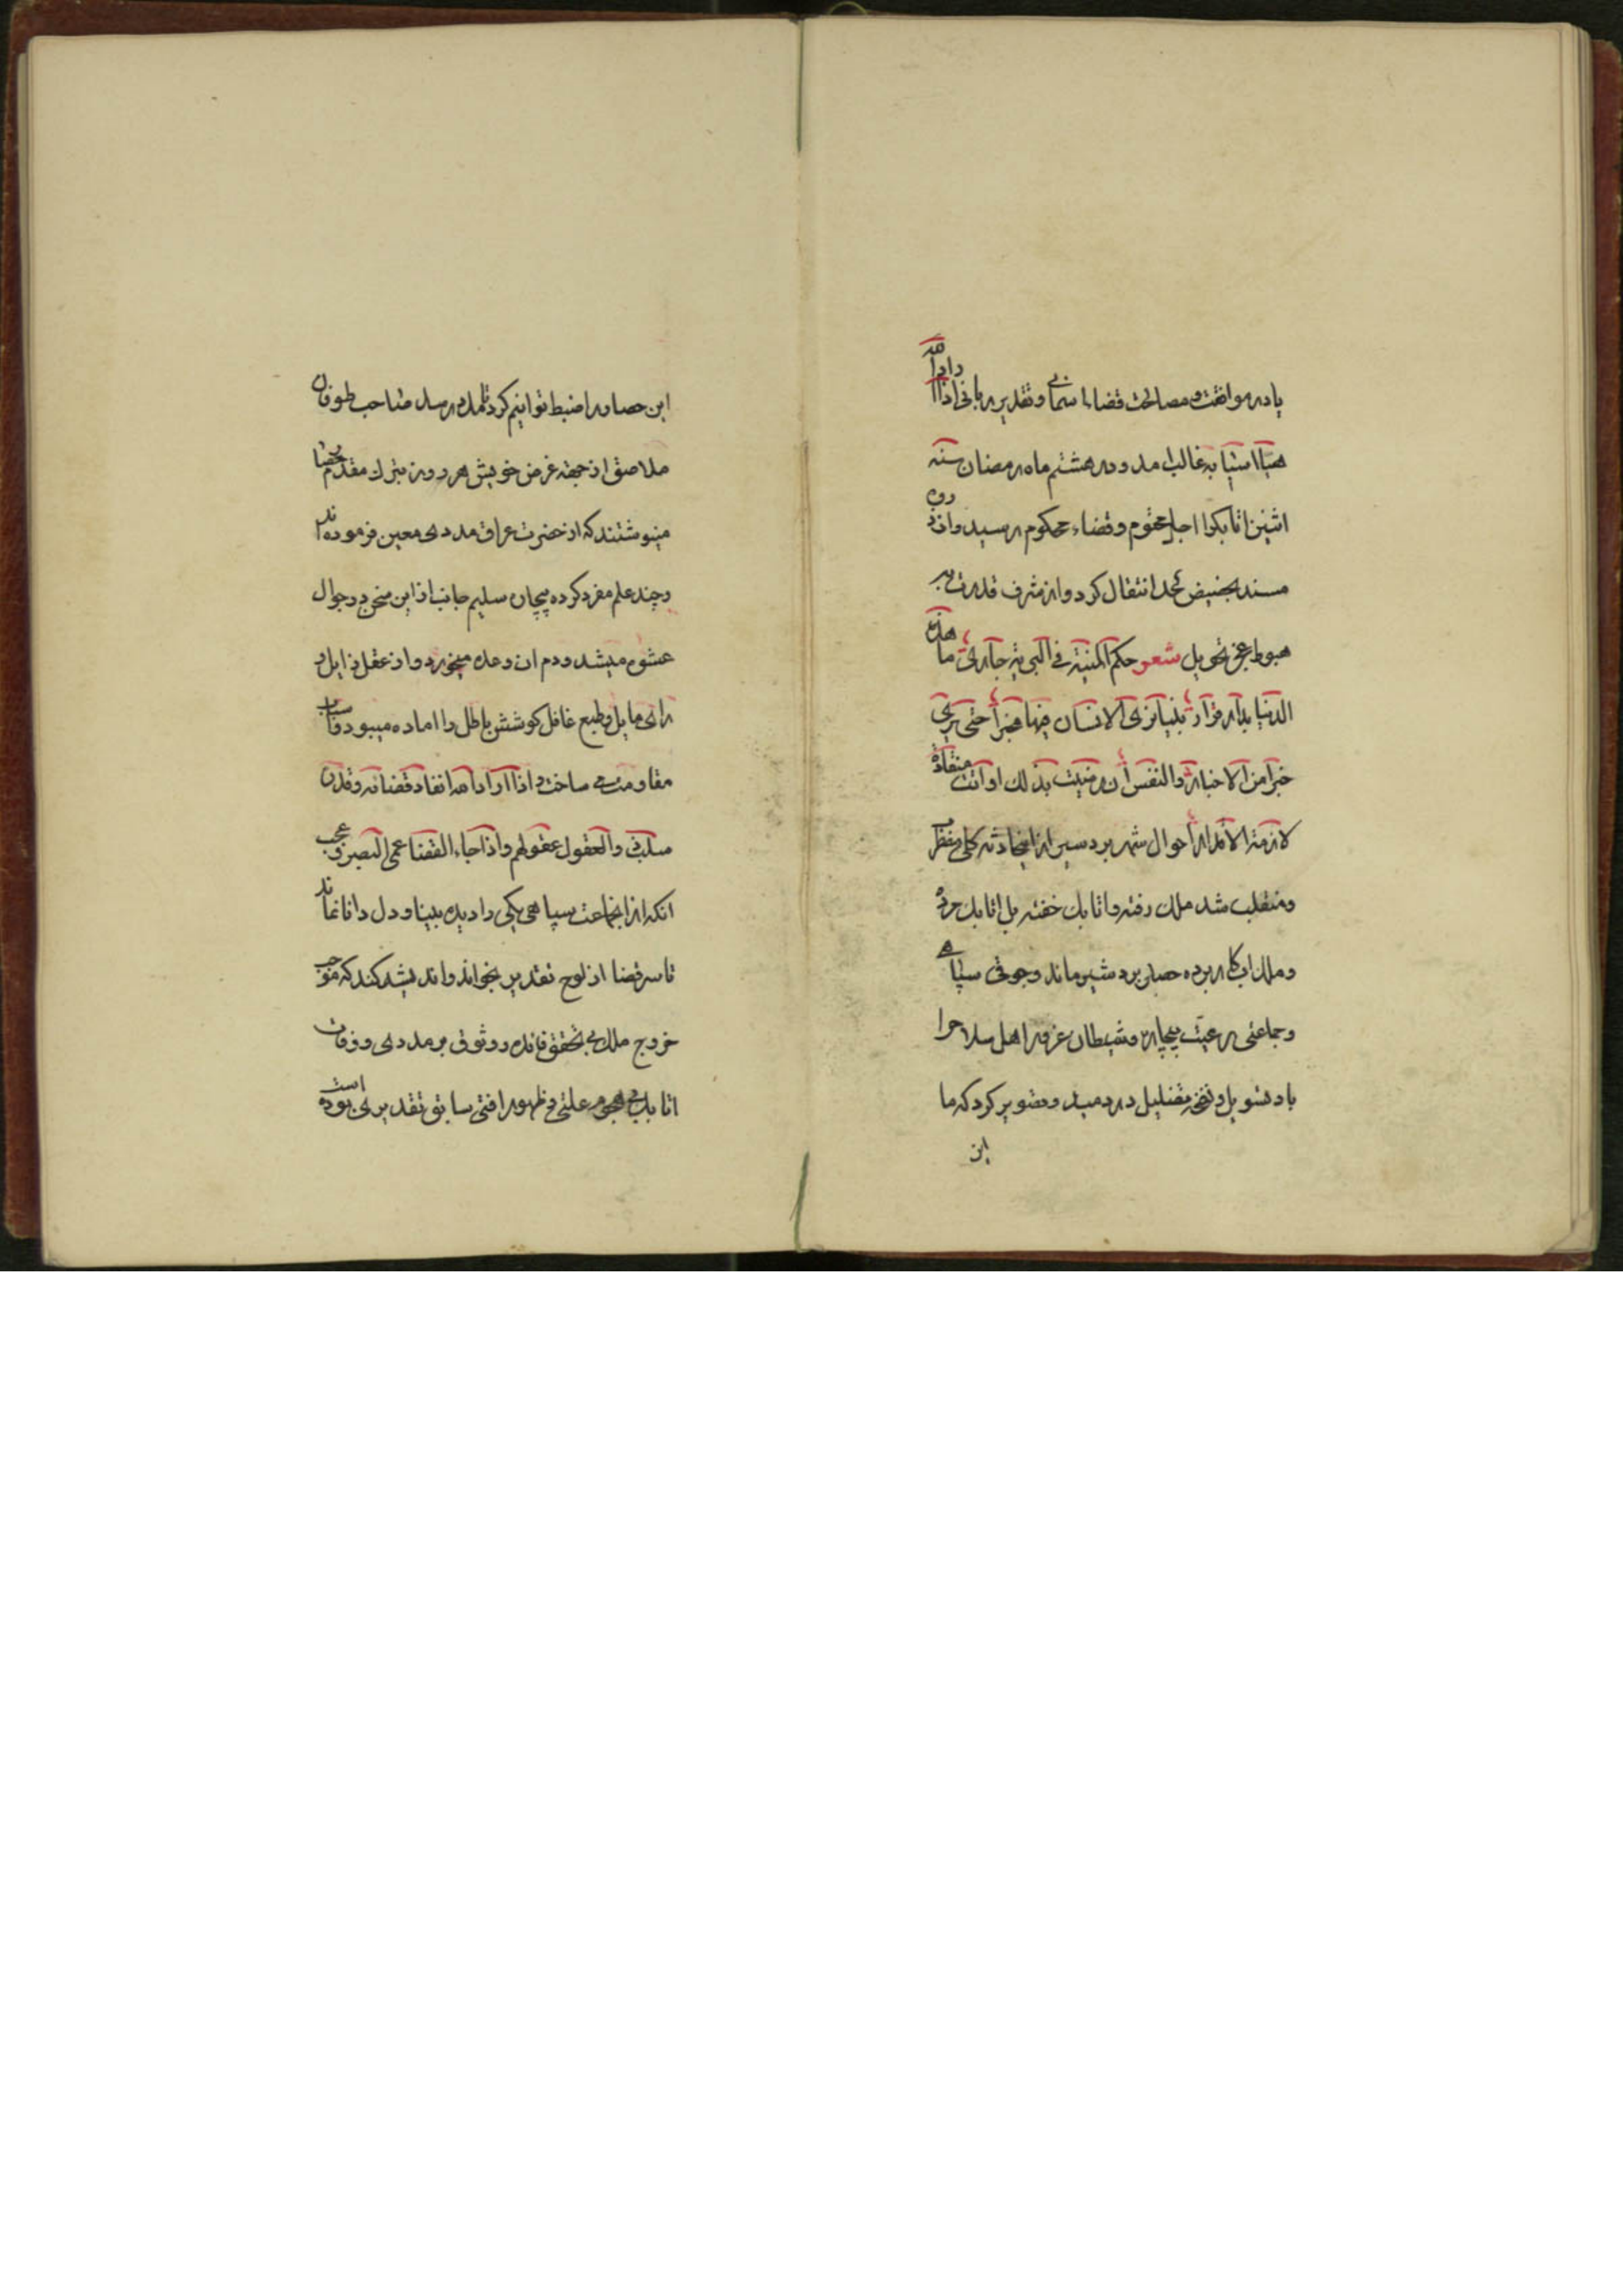 یا در موافقت و مصالحت قضاء اسمانی و تقدیر ربانی اذا اراد الله
هیأ اسبابه غالب امد و در هشتم ماه رمضان سنه
اثنین اتابکرا اجل محتوم و قضاء محکوم رسید و از ذروه
مسند بحضیض لحد انتقال کرد و از شرف قدرت به
هبوط عجز تحویل شعر حکم المنیة فی البریة جاری ما هذه
الدنیا بدار قرار بینا تری الانسان فیها مخبرا حتی یری
خبرا من الاخبار والنفس ان رضیت بذلک او ابت منقادة
لازمة الاقدار احوال شهر بردسیر از این حادثه کلی مضطرب
و منقلب شد ملک رفته و اتابک خفته بل اتابک مرده
و ملک اب کار برده حصار بردشیر ماند و جوقی سپاهی
و جماعتی رعیت بیچاره و شیطان غرور اهل سلاح را
باد تسویل و نفخه تضلیل در دمید و تصویر کرد که ما
این
این حصار را ضبط توانیم کرد تا مدد رسد صاحب طوفان
ملاصق از جهة غرض خویش هر روز بنزل مقدم
مینوشتند که از حضرت عراق مددی معین فرموده اند
و چند علم مفرد کرده بیچاره سلیم جانب از این مخرج و جوال
عشوه میشد و دم ان وعده میخورد و از عقل زایل و
رای مایل و طبع غافل کوشش باطل را اماده میبود و اسباب
مقاومت می ساخت و اذا اراد الله انفاذ قضائه و قدره
سلب ذوی العقول عقولهم و اذا جاء القضا عمی البصر و عجب
انکه از این جماعت سپاهی یکی را دیده بینا و دل دانا نماند
تا سر قضا از لوح تقدیر بخواند و اندیشه کند که موجب
خروج ملک بی تحقق فائده و وثوق بر مددی و وفات
اتابک بی هجوم علتی و ظهور افتی سابق تقدیری بوده است